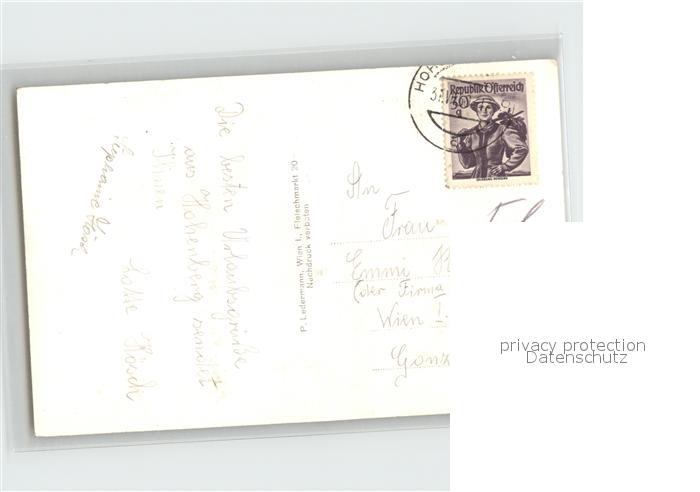 Die besten Urlaubsgrüße
aus Hohenberg sendet
Ihnen
Lotte Kosch
Stephanie
P. Ledermann, Wien I., Fleischmarkt 20
Nachdruck verboten
HOH
30
Republik Österreich
An
Frau
Emmi
(der Firma
Wien I.
Gonz
privacy protection
Datenschutz